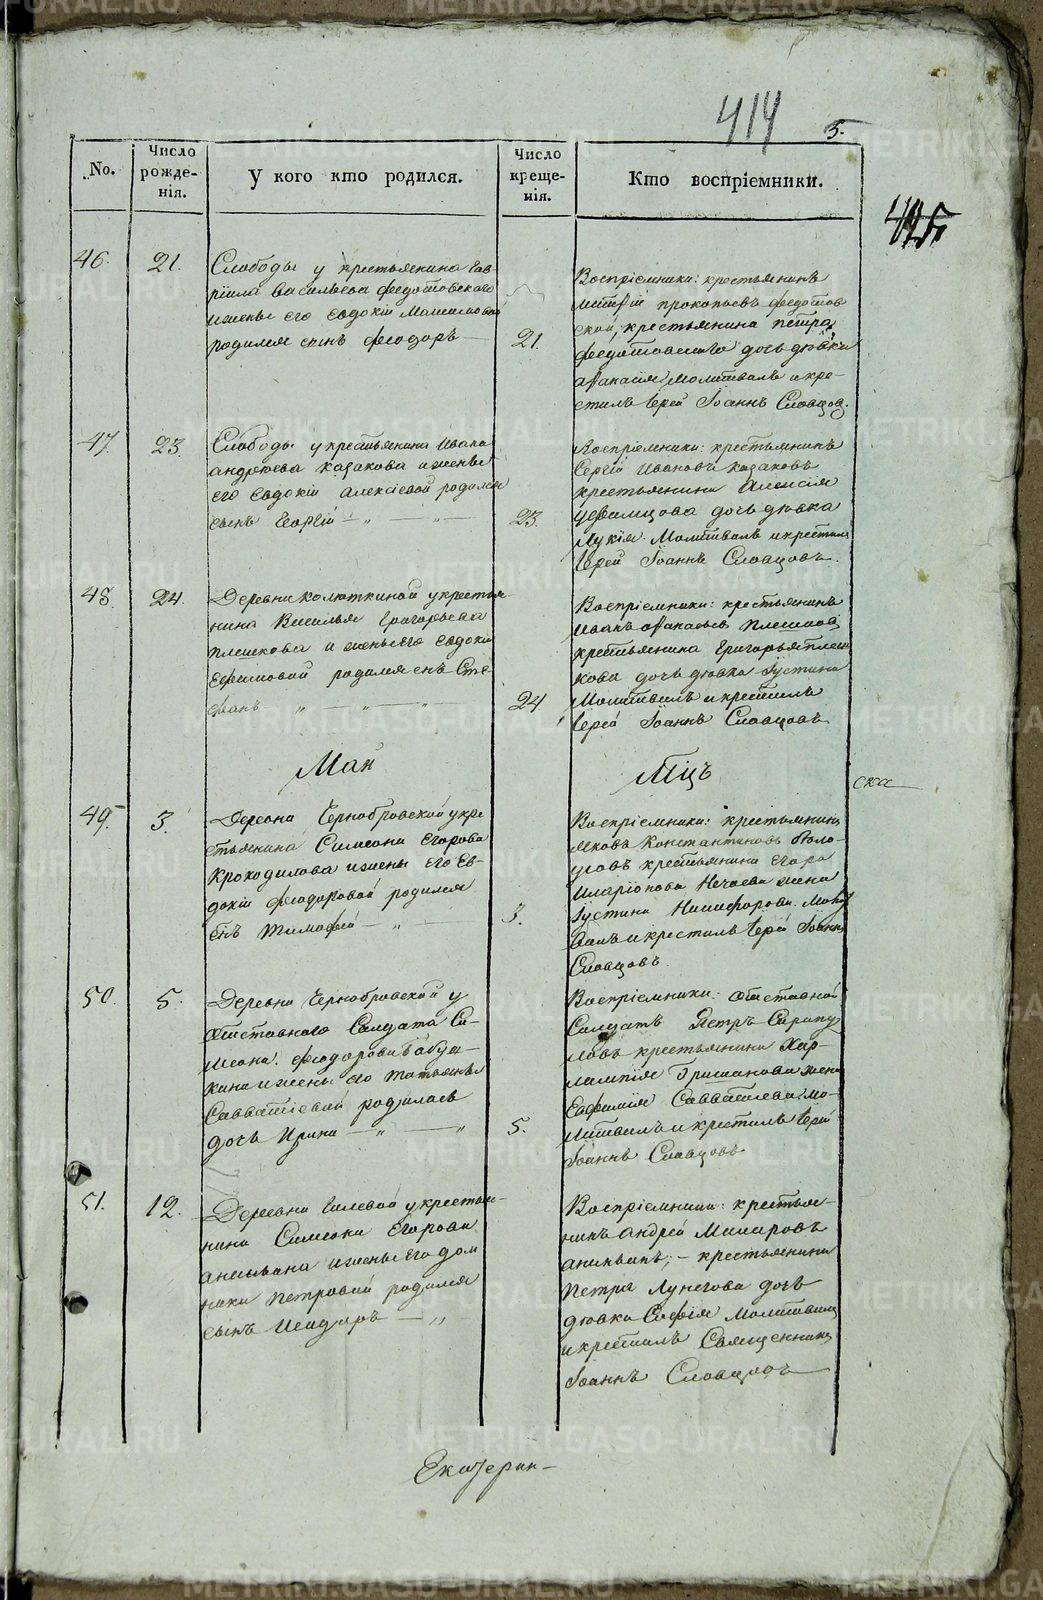 414
5.
415
No.
Число рожде-
нія.
У кого кто родился.
Число креще-
нія.
Кто воспріемники.
46.
21.
Слободы у крестьянина Гав-
ріила Васильева Федотовскаго
и жены его Евдокіи Максимовой
родился сынъ Феодоръ
21.
Воспріемники: крестьянинъ
Прокопьевъ Федотов
ской; крестьянина Петра
Федотовскаго дочь девка
Афанасія Молитвилъ и кре-
стилъ Іерей Іоаннъ Словцов.
47.
23.
Слободы у крестьянина Ивана
Андреева Казакова и жены
его Евдокіи Алексіевой родился
сынъ Георгій — „ — „ —
23.
Воспріемники: крестьянинъ
Сергій Ивановъ Казаковъ
крестьянина Алексія
Уфимцова дочь девка
Лукія. Молитвилъ и крестилъ
Іерей Іоаннъ Словцовъ.
48.
24.
Деревни Колюткиной у крестья-
нина Василья Григорьева
Плешкова и жены его Евдокіи
Ефимовой родился сынъ Сте-
фанъ — „ — „ — „ —
24
Воспріемники: крестьянинъ
Иванъ Афанасьев Плешков
крестьянина Григорья Плеш
кова дочь девка Іустина
Молитвилъ и крестилъ
Іерей Іоаннъ Словцовъ
Маи
Мцъ
ска
49.
3.
Деревни Чернобровской у кре-
стьянина Симеона Егорова
Крокодилова и жены его Ев-
докіи Феодоровой родился
снъ Тимофей — „ —
3.
Воспріемники: крестьянинъ
Яковъ Константиновъ Воло-
крестьянина Егора
Иларіонова Нечаева жена
Іустина Никифорова. Молит
вилъ и крестилъ Іерей Іоаннъ
Словцовъ.
50.
5.
Деревни Чернобровской у
Отставнаго Солдата Си-
меона Феодорова
кина и жены его Татьяны
Савватіевой родилась
дочь Ирина — „ — „
5.
Воспріемники: Отставной
Солдатъ Петръ Сирапу
ловъ крестьянина Хар-
лампія Гришанова жена
Евфимія Савватіева: мо-
литвилъ и крестилъ Іерей
Іоаннъ Словцовъ
51.
12.
Деревни Гилевой у крестья-
нина Симеона Егорова
Ананьина и жены его Дом
ники Петровой родился
сынъ Исидоръ — „
Воспріемники: крестья-
нинъ Андрей Макаровъ
Ананьинъ; — крестьянина
Петра Лунегова дочь
девка Софія Молитвилъ
и крестилъ Священникъ
Іоаннъ Словцовъ
Екатерин-
METRIKI.GASO-URAL.RU